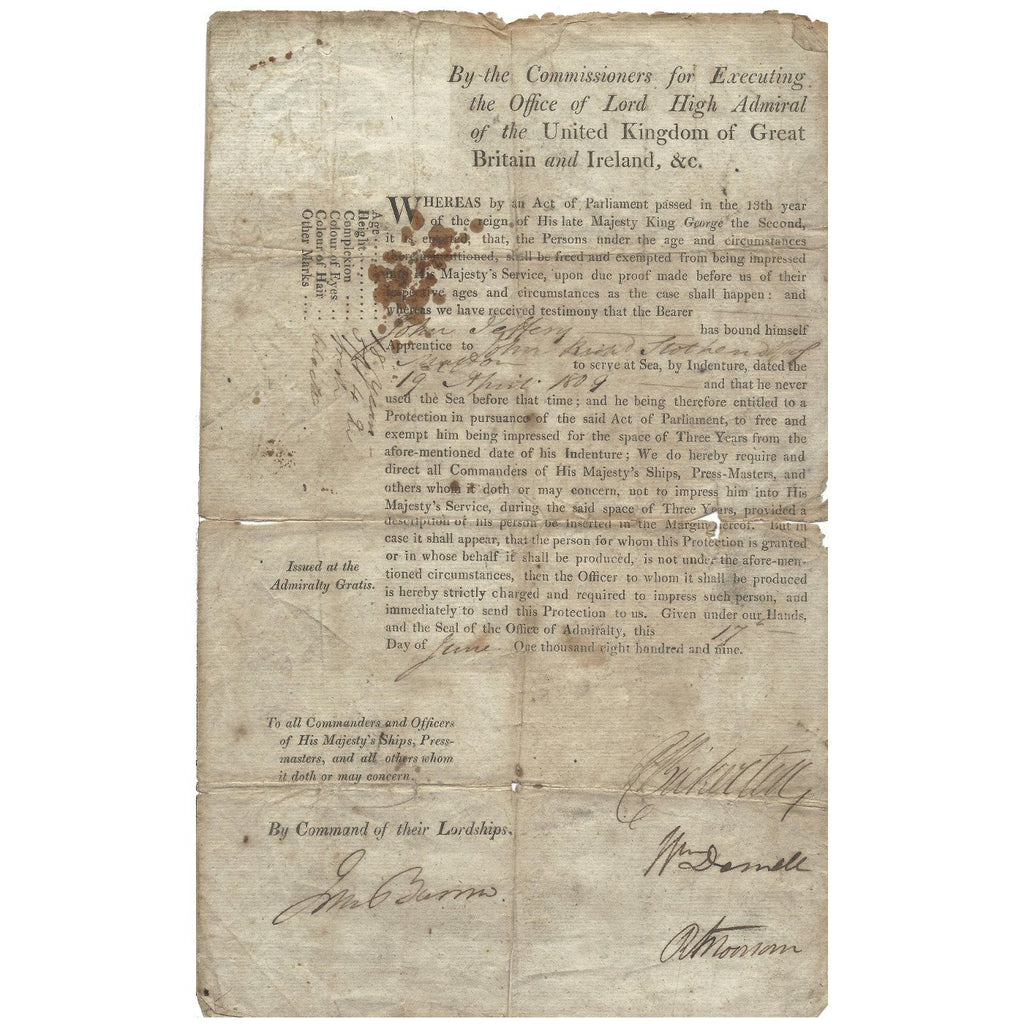 By the Commissioners for Executing
the Office of Lord High Admiral
of the United Kingdom of Great
Britain and Ireland, &c.
WHEREAS by an Act of Parliament passed in the 13th year
of the reign of His late Majesty King George the Second,
it is enacted, that, the Persons under the age and circumstances
mentioned, shall be freed and exempted from being impressed
into His Majesty's Service, upon due proof made before us of their
respective ages and circumstances as the case shall happen: and
whereas we have received testimony that the Bearer
John Jeffery has bound himself
Apprentice to John
to serve at Sea, by Indenture, dated the
19 April 1809 and that he never
used the Sea before that time; and he being therefore entitled to a
Protection in pursuance of the said Act of Parliament, to free and
exempt him being impressed for the space of Three Years from the
afore-mentioned date of his Indenture; We do hereby require and
direct all Commanders of His Majesty's Ships, Press-Masters, and
others whom it doth or may concern, not to impress him into His
Majesty's Service, during the said space of Three Years, provided a
description of his person be inserted in the Margin hereof. But in
case it shall appear, that the person for whom this Protection is granted
or in whose behalf it shall be produced, is not under the afore-men-
tioned circumstances, then the Officer to whom it shall be produced
is hereby strictly charged and required to impress such person, and
immediately to send this Protection to us. Given under our Hands,
and the Seal of the Office of Admiralty, this 17
Day of June One thousand eight hundred and nine.
Age
Height
Complexion
Colour of Eyes
Colour of Hair
Other Marks
Issued at the
Admiralty Gratis.
To all Commanders and Officers
of His Majesty's Ships, Press-
masters, and all others whom
it doth or may concern.
By Command of their Lordships.
R Bickerton
Wm Domett
R Moorsom